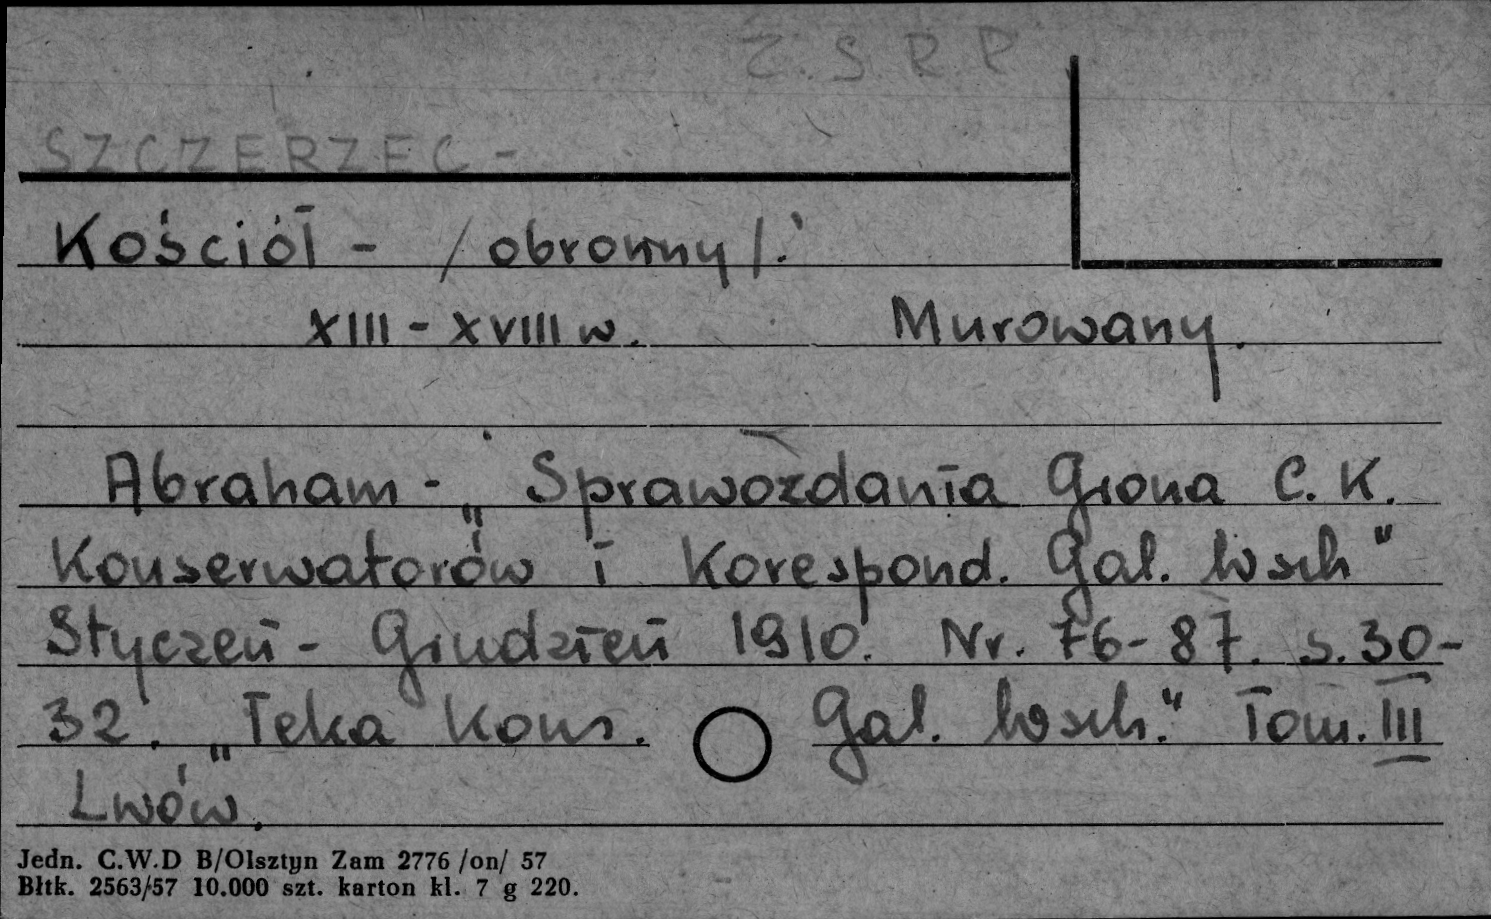 Z.S.R.P
SZCZERZEC -
Kościół - /obronny/.
XIII - XVIII w. Murowany.
Abraham - „Sprawozdania Grona C.K.
Konserwatorów i Korespond. Gal. Wsch"
Styczeń - Grudzień 1910. Nr. 76-87. s. 30-
32. „Teka Kons. Gal. Wsch." Tom. III
Lwów.
Jedn. C.W.D B/Olsztyn Zam 2776 /on/ 57
Błtk. 2563/57 10.000 szt. karton kl. 7 g 220.